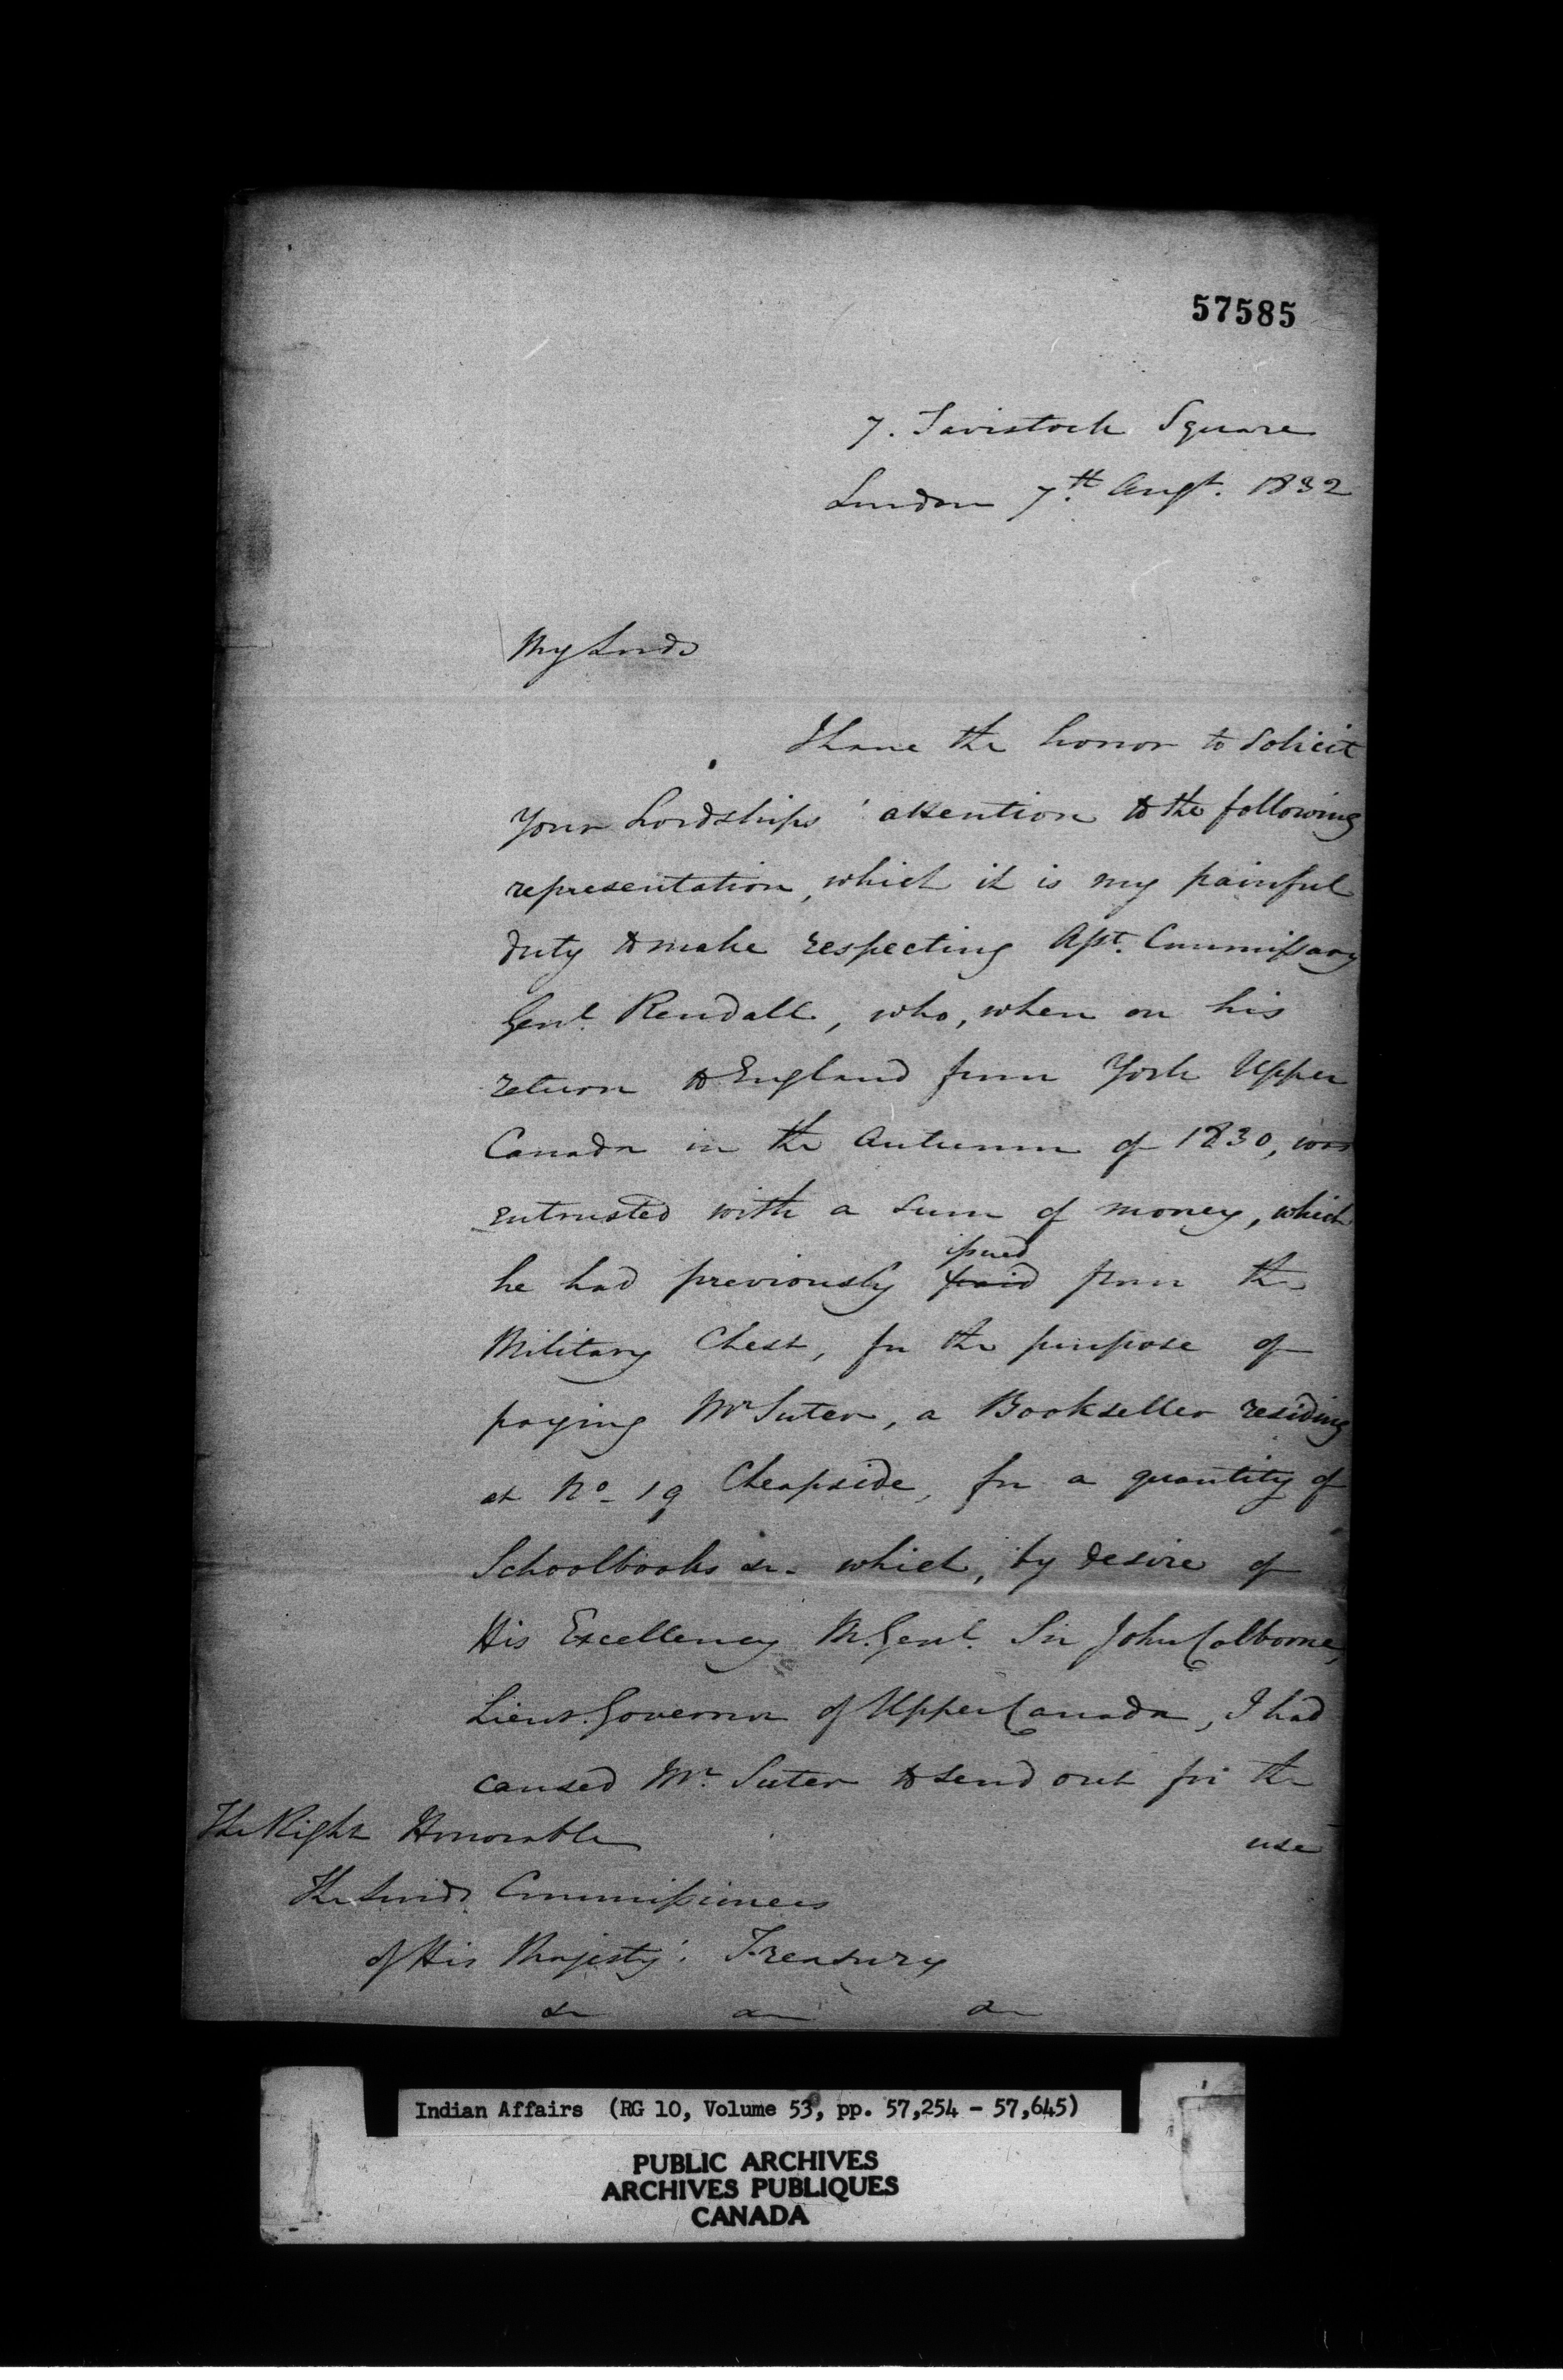 57585
7. Tavistock Square
London 7th Augt. 1832
My Lords
I have the honor to solicit
Your Lordships' attention to the following
representation, which it is my painful
duty to make respecting Asst. Commissary
Genl. Rendall, who, when on his
return to England from York Upper
Canada in the Autumn of 1830, was
entrusted with a sum of money, which
issued
he had previously paid from the
Military Chest, for the purpose of
paying Mr Suter, a Bookseller residing
at No. 19 Cheapside, for a quantity of
Schoolbooks &c. which, by desire of
His Excellency M. Genl. Sir John Colborne,
Lieut. Governor of Upper Canada, I had
caused Mr. Suter to send out for the
use
The Right Honorable
The Lords Commissioners
of His Majesty's Treasury
&c &c &c
Indian Affairs (RG 10, Volume 53, pp. 57,254 - 57,645)
PUBLIC ARCHIVES
ARCHIVES PUBLIQUES
CANADA